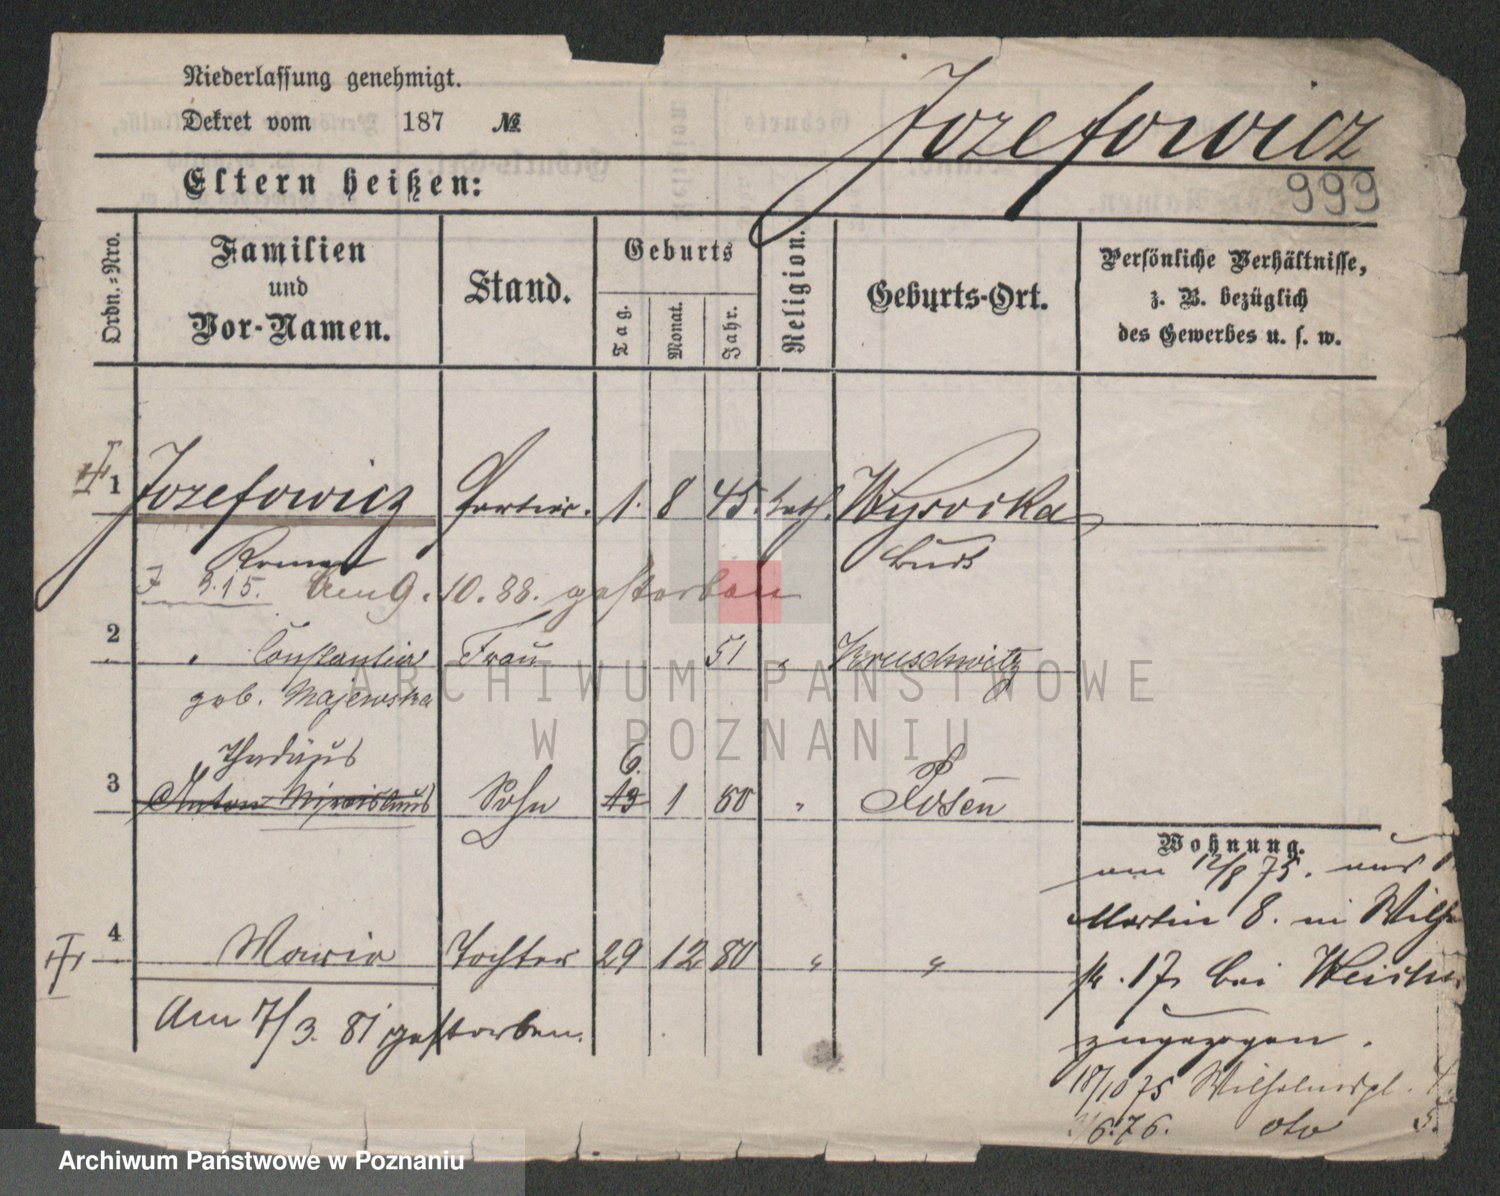 Niederlassung genehmigt.
Dekret vom 187 №
Jozefowicz
Eltern heißen:
999
Ordn.-Nro.
Familien
und
Vor-Namen.
Stand.
Geburts
Tag.
Monat.
Jahr.
Religion.
Geburts-Ort.
Persönliche Verhältnisse,
z. B. bezüglich
des Gewerbes u. s. w.
1 Jozefowicz Portier. 1. 8 45. kath. Wysocka
Roman
Am 9. 10. 88. gestorben
2 " Constantia Frau 51 " Kruschwitz
geb. Majewska
Thadäus 6.
3 Anton Sohn 13 1 80 " Posen
Wohnung.
am 12/8 75. aus
Martin 8. in Wilh
4 Maria Tochter 29 12 80 " "
str. 17 bei
Am 7/3. 81 gestorben.
zugezogen.
18/10 75 Wilhelmspl.
6.76. oto 5.
ARCHIWUM PAŃSTWOWE
W POZNANIU
Archiwum Państwowe w Poznaniu